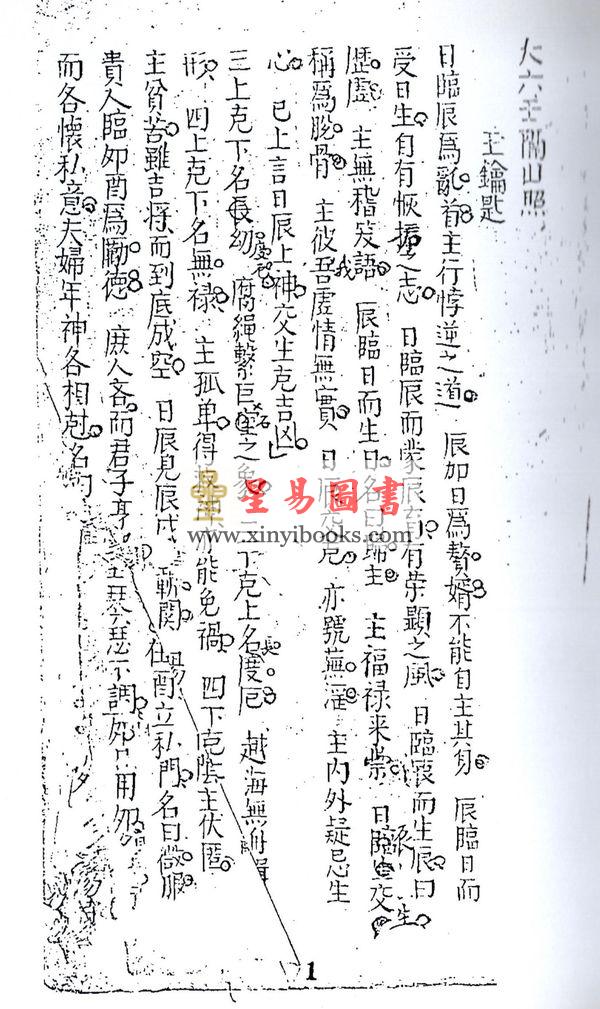 大六壬隔山照
玉鑰匙
日臨辰爲亂首主行悖逆之道 辰加日爲贅婿不能自主其身 辰臨日而
受日生自有恢振之志 日臨辰而蒙辰育有荣顯之風 日臨辰而生辰曰
歴虛 主無稽笑語 辰臨日而生日名曰歸主 主福禄来崇 日臨辰交生
稱爲脫骨 主彼吾虛情無實 日辰交克 亦號蕪淫 主内外疑忌生
心 已上言日辰上神交生克吉凶
三上克下名長幼 腐繩繫巨 之象 三下克上名度厄 越海無舟楫
四上克下名無禄 主孤单得救 亦能免禍 四下克 主伏匿
主貧苦雖吉将而到底成空 日辰見辰戌 斬関 在酉立私門名曰微服
貴人臨夘酉爲勵德 庶人吝而君子亨 琴瑟不調 用
而各懷私意夫婦年神各相尅名
星易圖書
www.xinyibooks.com
1